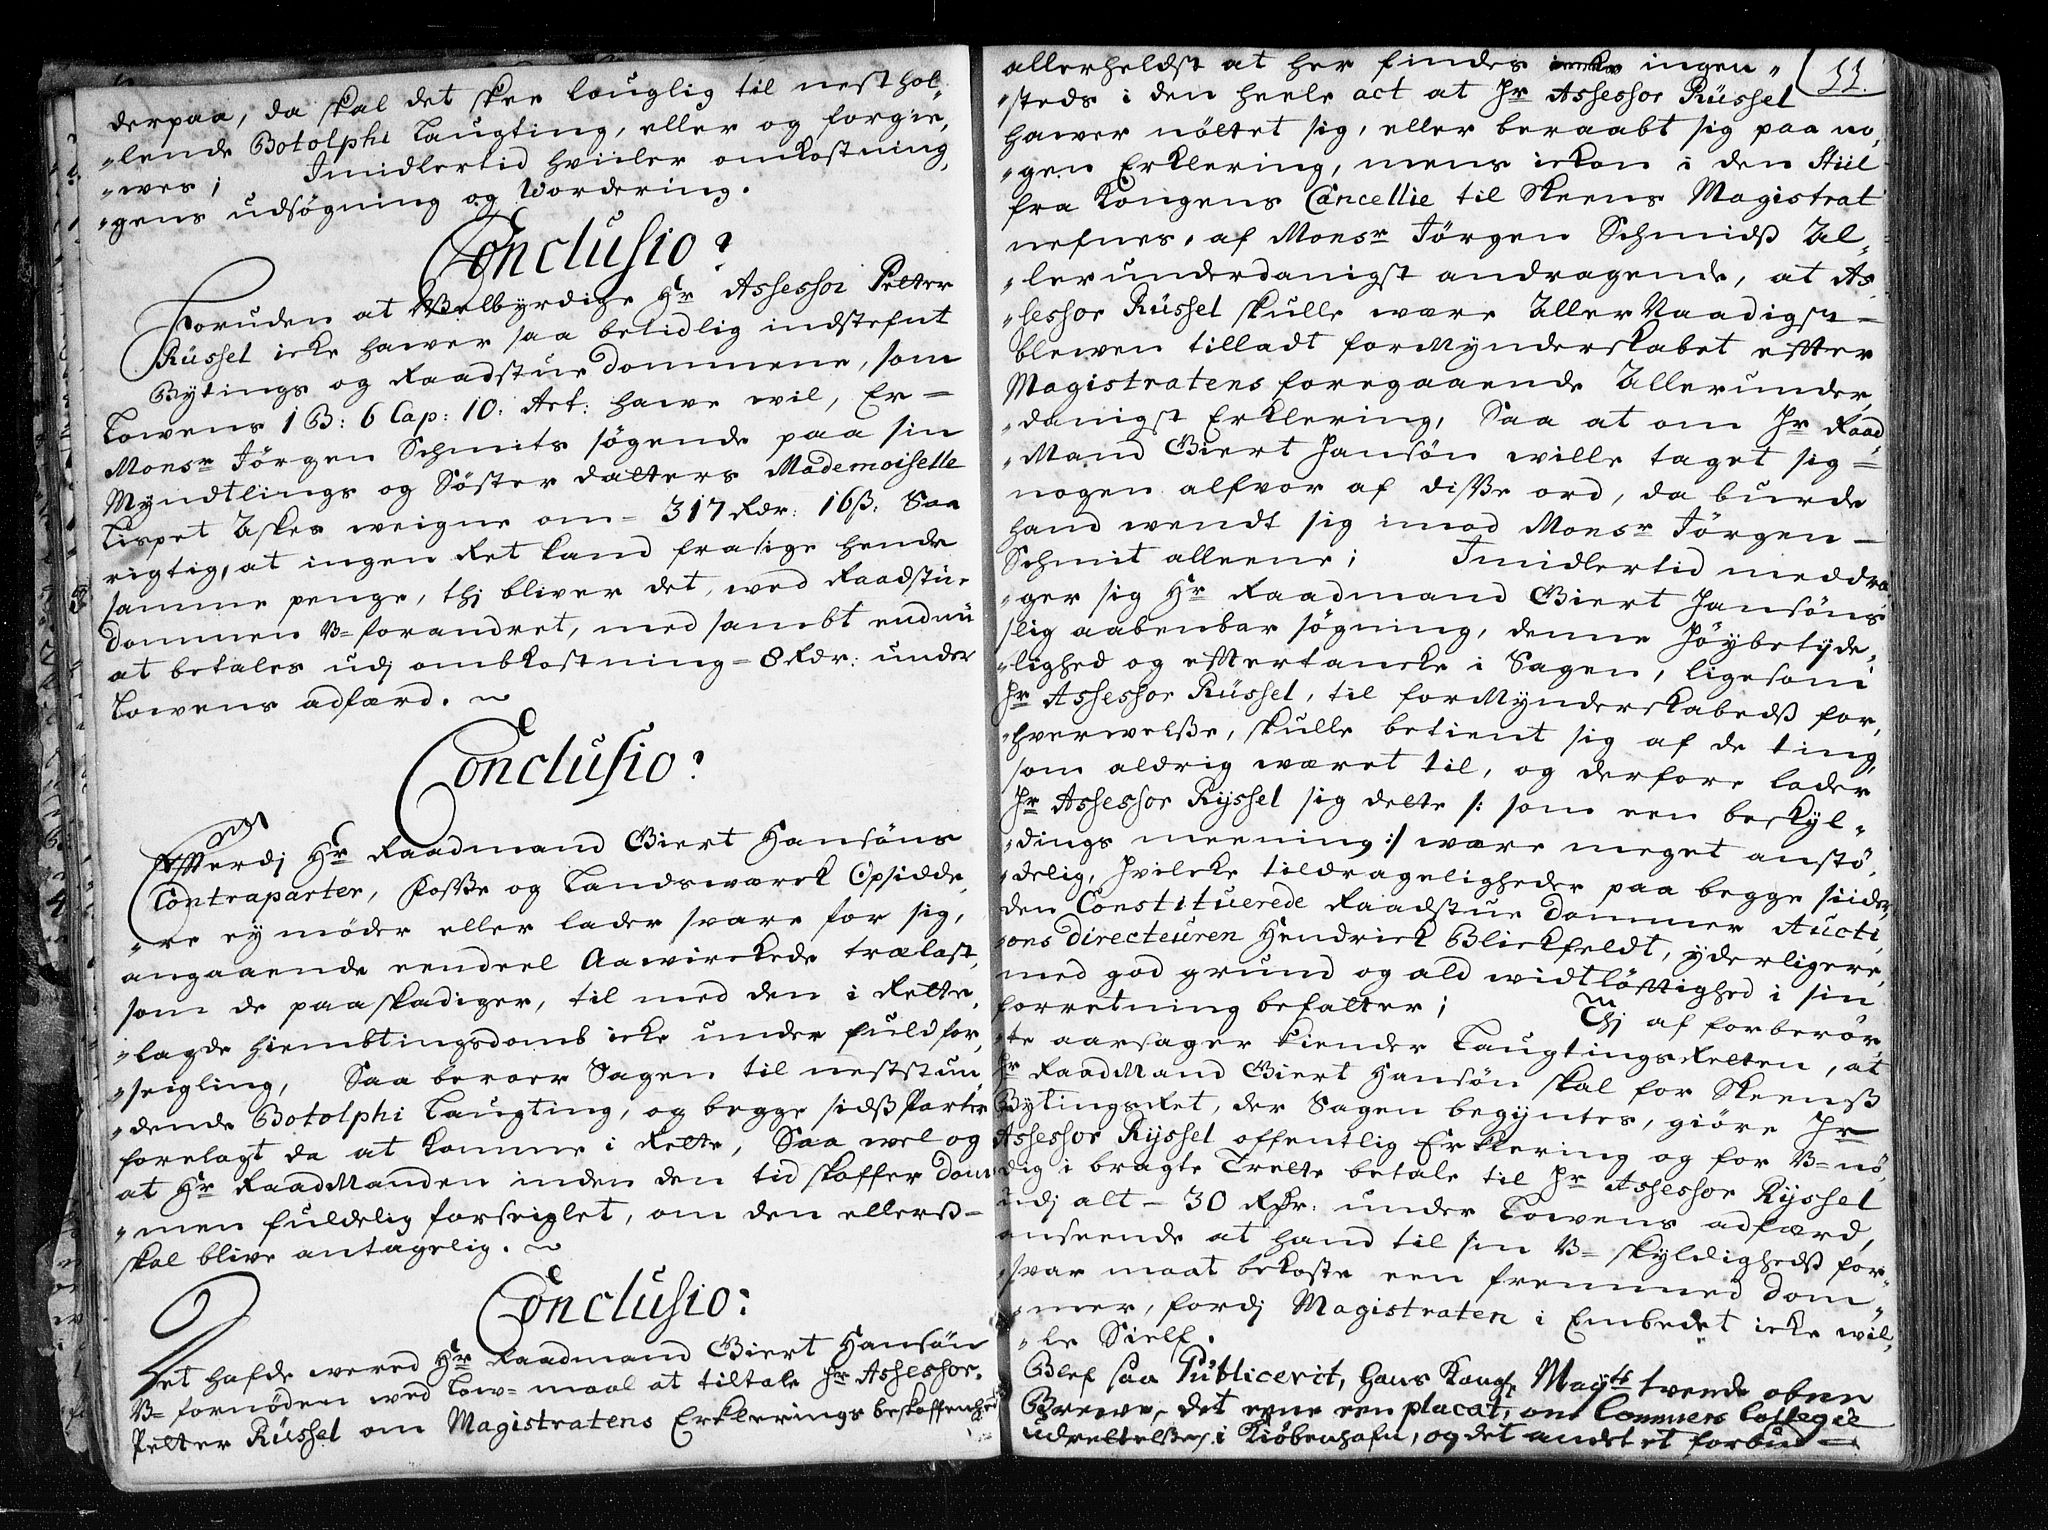 derpaa, da skal det skee louglig til nest hol,
„lende Botolphi Laugting, eller og forgie,
„wes; Imidlertid hviiler omkostning,
„gens udsögning og Wordering.
Conclusio:
Foruden at Welbyrdige Hr Assessor Petter
Rüssel icke hawer saa betidlig indstefnt
Bytings og Raadstue dommene, som
Lowens 1 B: 6 Cap: 10: Art: hawe wil, Er =
Monsr Jörgen Schmits sögende paa sin
Myndtlings og Söster datters Mademoiselle
Lispet Askes weigne om = 317 Rdr: 16 ß: Saa
rigtig, at ingen Ret kand frasige hende
samme penge, thj bliver det, wed Raadstu=
dommen U=forandret, med sambt endnu
at betales udj ombkostning = 8 Rdr: under
Lowens adfærd. ~
Conclusio:
Efterdj Hr Raadmand Giert Hansöns
Contraparter, Fosse og Landswærck Opsidde,
„re ey möder eller lader svare for sig,
angaaende eendeel Aawirckede trælast,
som de paaskadiger, til med den i Rette,
„lagde hiembtingsdomb icke under fuld for,
„seigling, Saa beroer Sagen til neststun,
„dende Botolphi Laugting, og begge sidß Parter
forelagt da at komme i Rette, Saa wel og
at Hr RaadManden inden den tid skaffer dom
„men fuldelig forseiglet, om den ellerß =
skal blive antagelig. ~
Conclusio:
Det hafde wered Hr Raadmand Giert Hansön
U=fornöden wed Low=maal at tiltale Hr Assessor
Petter Rüssel om Magistratens Erklerings beskaffenhed
11.
allerheldst at her findes ingen „
„steds i den heele act at Hr Assessor Rüssel
hawer nöttet sig, eller beraabt sig paa no,
„gen Erklering, mens ickon i den Stiil
fra Kongens Cancellie til Skeens Magistrat
nefnes, af Monsr Jörgen Schmidß Al,
„lerunderdanigst andragende, at As,
„sessor Rüssel skulle ware AllerNaadigst =
blewen tilladt forMynderskabet efter
Magistratens foregaaende Allerunder,
„danigst Erklering, Saa at om Hr Raad
„Mand Giert Hansön wille taget sig =
nogen alfvor af disse ord, da burde
hand wendt sig imod Monsr Jörgen =
Schmit alleene; Imidlertid meddra
„ger sig Hr Raadmand Giert Hansöns
slig aabenbar sögning, denne Höybetyde,
„lighed og eftertancke i Sagen, ligesom
Hr Assessor Rüssel, til forMynderskabedß for,
„hverwelße, skulle betient sig af de ting,
som aldrig wæret til, og derfore lader
Hr Assessor Ryssel sig dette /: som een beskyl „
„dings meening :/ ware meget anstö,
„delig, hvilcke tildrageligheder paa begge siider,
den Constituerede Raadstue dommer Aucti
„ons directeuren Hendrick Blickfeldt, yderligere,
med god grund og ald widtlöftighed i sin
forretning befatter; Thj af forberör,
„te aarsager kiender Laugtings Retten, at
Hr RaadMand Giert Hansön skal for Skeenß
Bytings Ret, der Sagen begyntes, giöre Hr
Assessor Ryssel offentlig Erklering og for U=nö,
dig i bragte Trette betale til Hr Assessor Ryssel
udj alt = 30 Rdr: under Lowens adfærd,
anseende at hand til sin U=skyldighedß for,
„svar maat bekoste een fremmed dom „
„mer, fordj Magistraten i Embedet icke wil,
„le Sielf.
Blef saa Publicerit, Hans Kongl Mayts tvende obne
Brewe, det eene een placat, om Commers Collegie
udrettelße i Kiöbenhafn, og det andet et forbud =